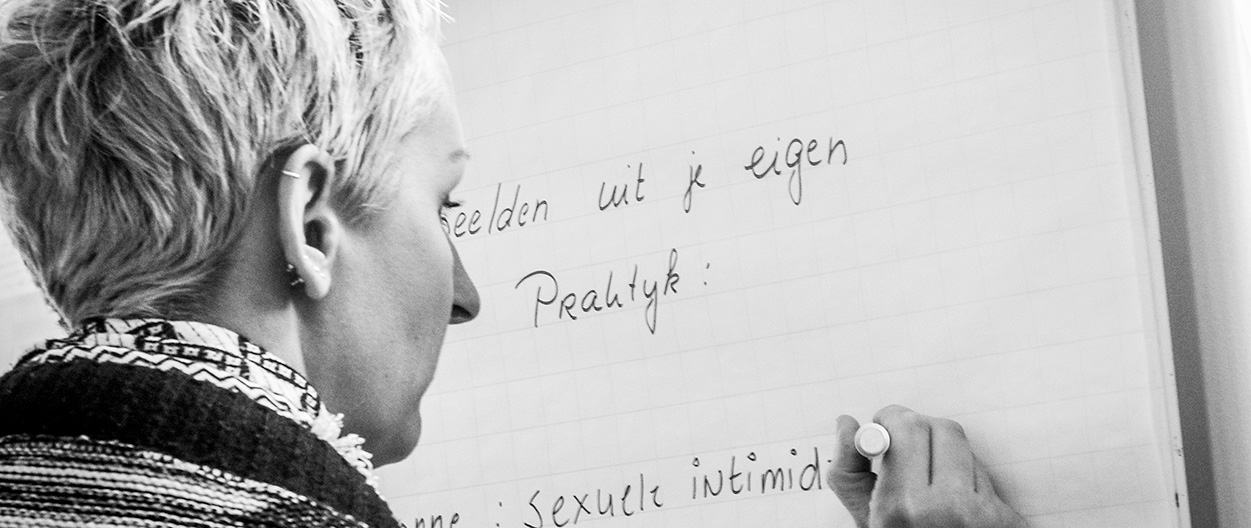 beelden uit je eigen
Praktyk :
nne : sexuele intimid